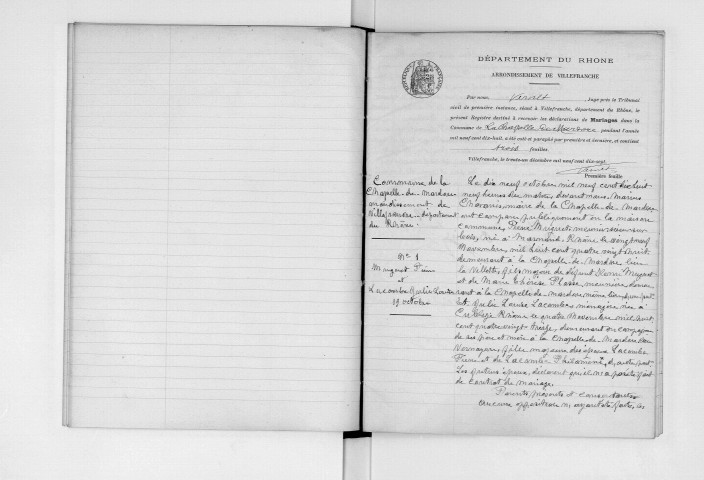 DÉPARTEMENT DU RHONE
ARRONDISSEMENT DE VILLEFRANCHE
Par nous, Juge près le Tribunal
civil de première instance, séant à Villefranche, département du Rhône, le
présent Registre destiné à recevoir les déclarations de Mariages dans la
Commune de La Chapelle de Mardore pendant l'année
mil neuf cent dix-huit, a été coté et paraphé par première et dernière, et contient
trois feuilles.
Villefranche, le trente-un décembre mil neuf cent dix-sept.
Première feuille
Commune de la
Chapelle-de-Mardore
arrondissement de
Villefranche-département
du Rhône.
N° 1
Muguet Pierre
et
Lacombe Julie Louise
19 octobre
Le dix neuf octobre mil neuf cent dix huit
neuf heures du matin, devant nous, Marius
maire de la Chapelle-de-Mardore
ont comparu publiquement en la maison
commune, Pierre Muguet,
né à Rhône le vingt neuf
Novembre mil huit cent quatre vingt
demeurant à la Chapelle-de-Mardore lieu
la Villette, fils majeur de défunt Henri Muguet
et de Marie Thérèse
à la Chapelle-de-Mardore, même lieu, d'une part,
Et Julie Louise Lacombe, ménagère née à
Cublize Rhône le quatre Novembre mil huit
cent quatre vingt treize, demeurant en compagnie
de ses père et mère à la Chapelle de Mardore lieu
fille majeure des époux Lacombe
Pierre et de Lacombe Philomène, d'autre part.
Les futurs époux déclarent qu'il n'a pas été fait
de contrat de mariage.
aucune opposition n'ayant été faite, les